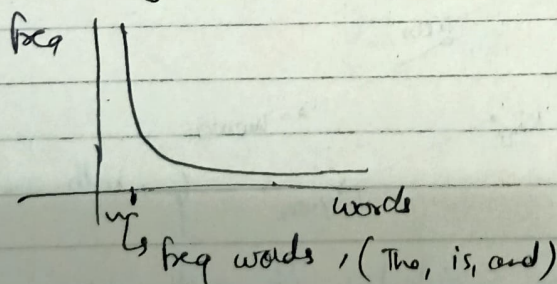 freq
words
freq words, (The, is, and)